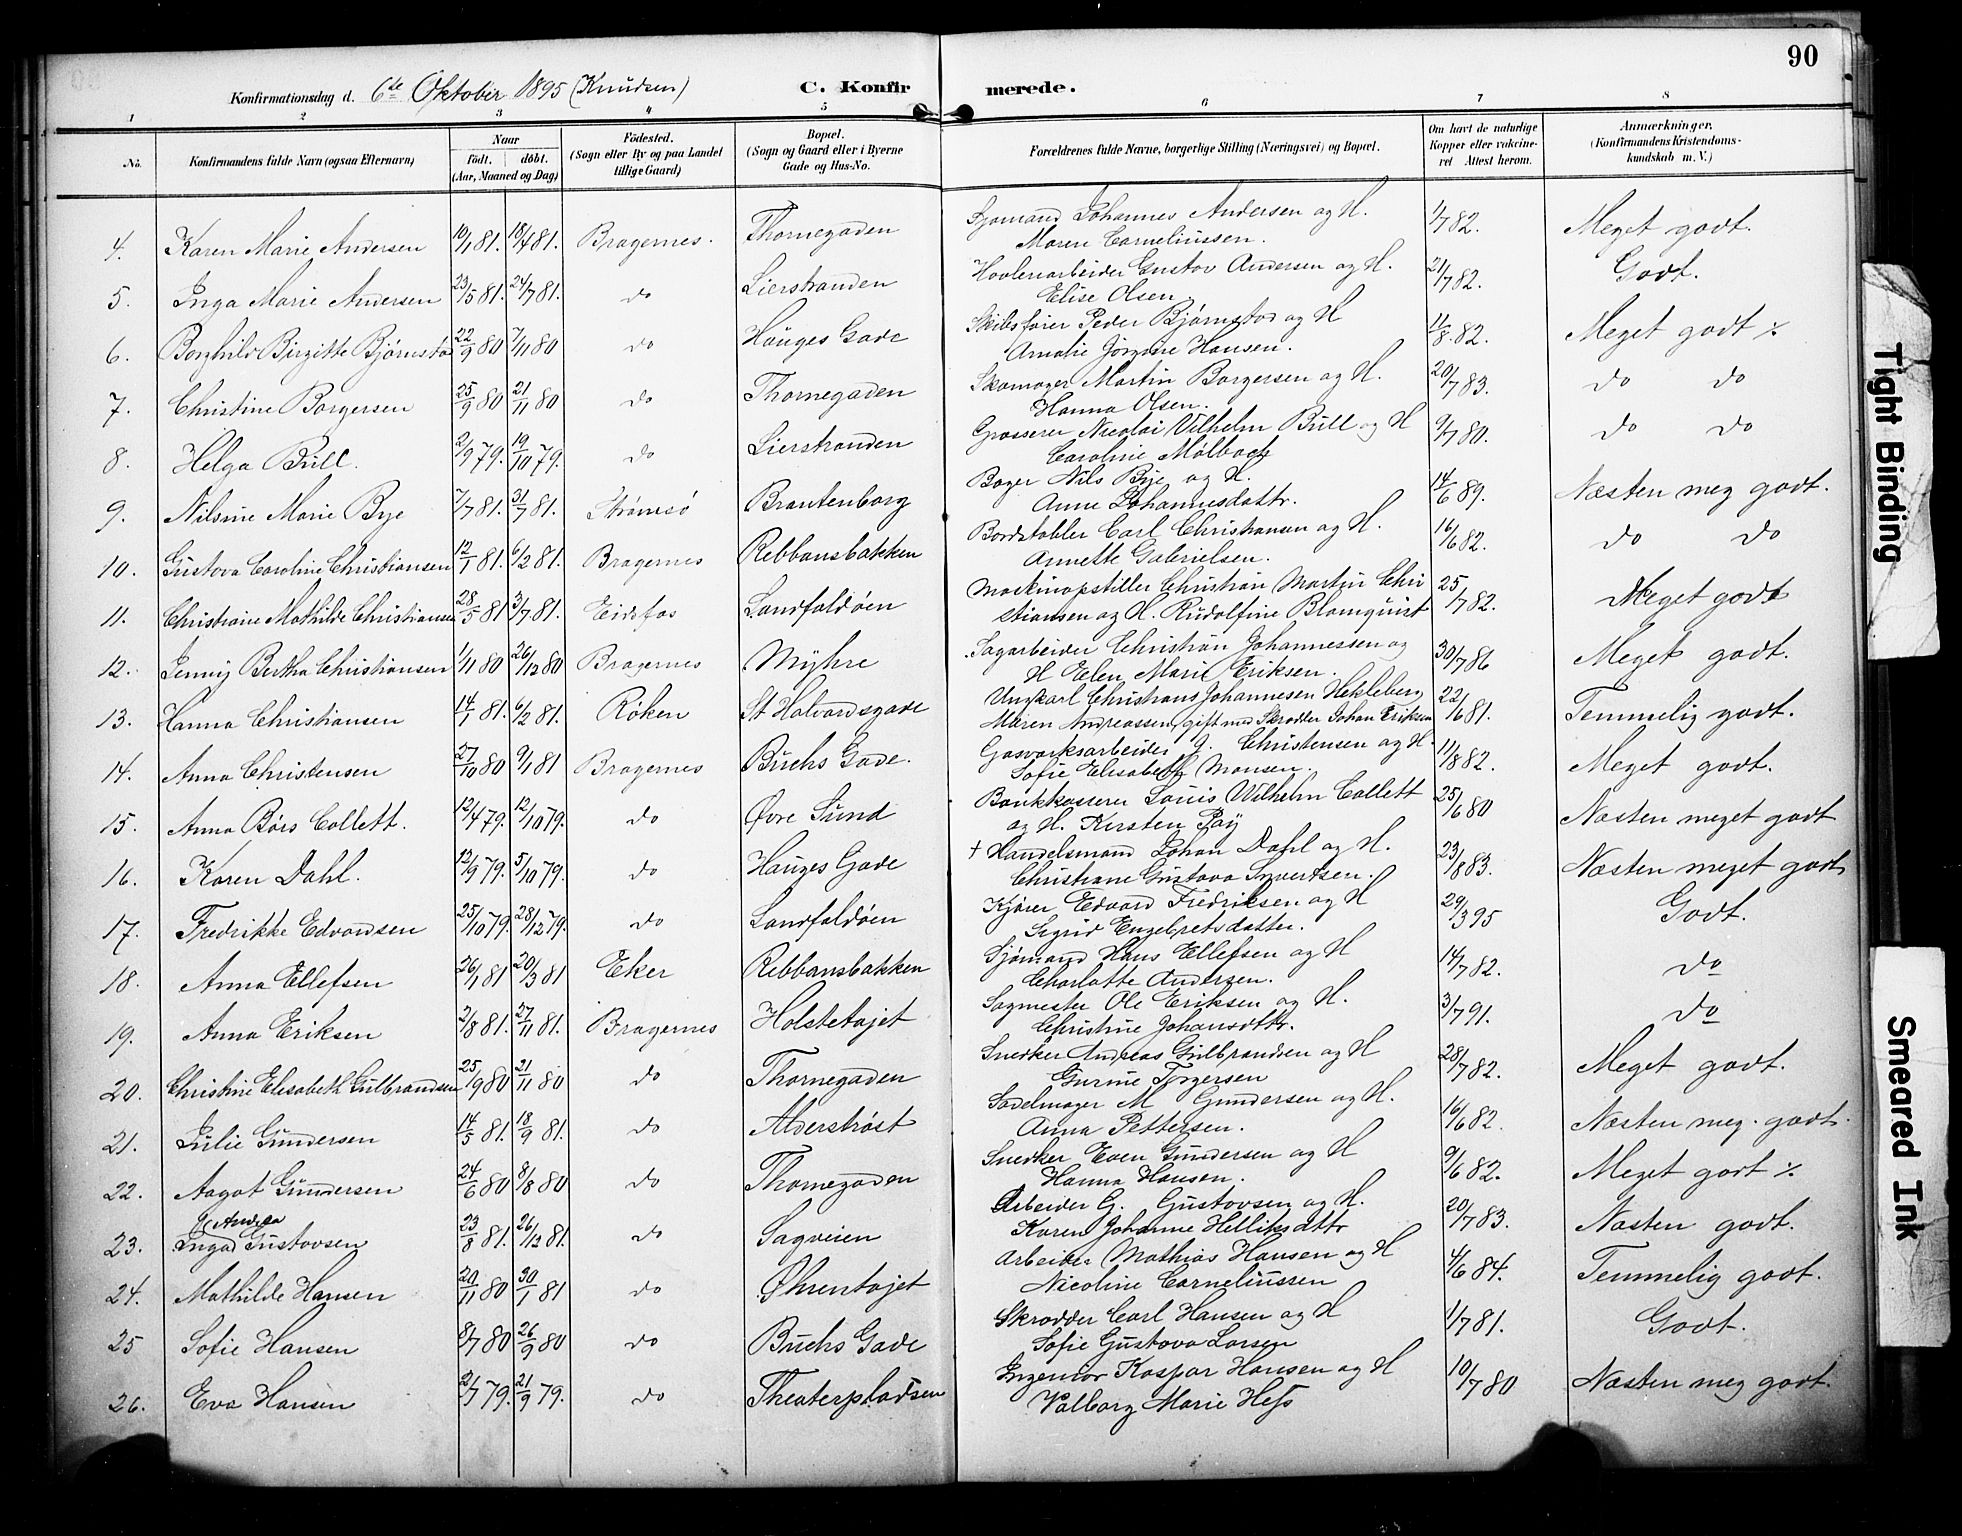 90
Konfirmationsdag d. 6te Oktober 1895 (Knudsen) C. Konfirmerede.
1 2 3 4 5 6 7 8
No. Konfirmandens fulde Navn (ogsaa Efternavn) Naar født. døbt. (Aar, Maaned og Dag) Fødested. (Sogn eller By og paa Landet tillige Gaard) Bopæl. (Sogn og Gaard eller i Byerne Gade og Hus-No. Forældrenes fulde Navne, borgerlige Stilling (Næringsvei) og Bopæl. Om havt de naturlige Kopper eller vakcineret Attest herom. Anmærkninger. (Konfirmandens Kristendomskundskab m. V.)
4. Karen Marie Andersen 10/1 81. 18/4 81. Bragernes. Thornegaden Sjømand Johannes Andersen og H. 1/7 82. Meget godt.
Maren Corneliussen.
5. Inga Marie Andersen 23/5 81. 24/7 81. do Lierstranden Høvleriarbeider Gustav Andersen og H. 21/7 82. Godt.
Elise Olsen
6. Borghild Birgitte Bjørnstad 22/9 80 7/11 80 do Hauges Gade Skibsfører Peder Bjørnstad og H 11/8 82. Meget godt %
Amalie Jørgine Hansen.
7. Christine Borgersen 25/9 80 21/11 80 do Thornegaden Skomager Martin Borgersen og H. 20/7 83. do do
Hanna Olsen.
8. Helga Bull. 2/9 79. 19/10 79. do Lierstranden Grosserer Nicolai Wilhelm Bull og H 9/7 80. do do
Caroline Mølbach
9. Nilsine Marie Bye 7/7 81. 31/7 81. Strømsø Brantenborg Bager Nils Bye og H. 14/6 89. Næsten meg godt.
Anne Johannesdattr.
10. Gustava Caroline Christiansen 12/1 81. 6/2 81. Bragernes Rebbansbakken Bordstabler Carl Christiansen og H. 16/6 82. do do
Annette Gabrielsen.
11. Christiane Mathilde Christiansen 28/5 81 3/7 81. Eidsfos Landfaldøen Maskinopstiller Christian Martin Chri 25/7 82. Meget godt
stiansen og H. Rudolfine Blomquist
12. Jenny Bertha Christiansen 1/11 80 26/12 80 Bragernes Myhre Sagarbeider Christian Johannessen og 30/7 86 Meget godt.
H Elen Marie Eriksen.
13. Hanna Christiansen 14/1 81. 6/2 81. Røken St Halvardsgade Ungkarl Christians Johannesen Hekleberg 22/6 81. Temmelig godt.
Maren Andreassen, gift med Skrædder Johan Eriksen
14. Anna Christensen 27/10 80 9/1 81 Bragernes Buchs Gade. Gasværksarbeider J. Christensen og H. 11/8 82. Meget godt.
Sofie Elisabeth Monsen.
15. Anna Børs Collett. 12/4 79. 12/10 79. do Øvre Sund Bankkasserer Louis Wilhelm Collett 25/6 80 Næsten meget godt
og H. Kirsten Pay
16. Karen Dahl. 12/9 79. 5/10 79. do Hauges Gade + Handelsmand Johan Dahl og H. 23/8 83. Næsten meget godt
Christiane Gustava Syvertsen.
17. Fredrikke Edvardsen 25/10 79. 28/12 79. do Landfaldøen Kjører Edvard Fredriksen og H 29/3 95 Godt.
Sigrid Engebretsdatter.
18. Anna Ellefsen 26/1 81 20/3 81 Eker Rebbansbakken Sjømand Hans Ellefsen og H 14/7 82. do
Charlotte Andersen.
19. Anna Eriksen 2/8 81. 27/11 81. Bragernes Holstetøjet Sagmester Ole Eriksen og H. 3/7 91. do
Christine Johansdttr.
20. Christine Elisabeth Gulbrandsen 25/9 80 21/11 80 do Thornegaden Snedker Andreas Gulbrandsen og H 28/7 82. Meget godt.
Gurine Torgersen
21. Julie Gundersen 14/5 81. 18/9 81. do Alderstrøst Sadelmager M Gundersen og H. 16/6 82. Næsten meg. godt.
Anna Pettersen.
22. Aagot Gundersen 24/6 80 8/8 80 do Thornegaden Snedker Even Gundersen og H 9/6 82. Meget godt %
Hanna Hansen.
23. Inga Andrea Gustavsen 23/8 81. 26/12 81. do Sagveien Arbeider G. Gustavsen og H. 20/7 83. Næsten godt.
Karen Johanne Helliksdttr
24. Mathilde Hansen 20/11 80 30/1 81 do Øhrentøjet Arbeider Mathias Hansen og H 4/6 84. Temmelig godt.
Nicoline Corneliussen
25 Sofie Hansen 8/7 80 26/9 80 do Buchs Gade Skrædder Carl Hansen og H 1/7 81. Godt.
Sofie Gustava Larsen
26. Eva Hansen 2/7 79. 21/9 79. do Theaterpladsen Ingeniør Kaspar Hansen og H 10/7 80 Næsten meg godt.
Valborg Marie Hess
Tight Binding
Smeared Ink